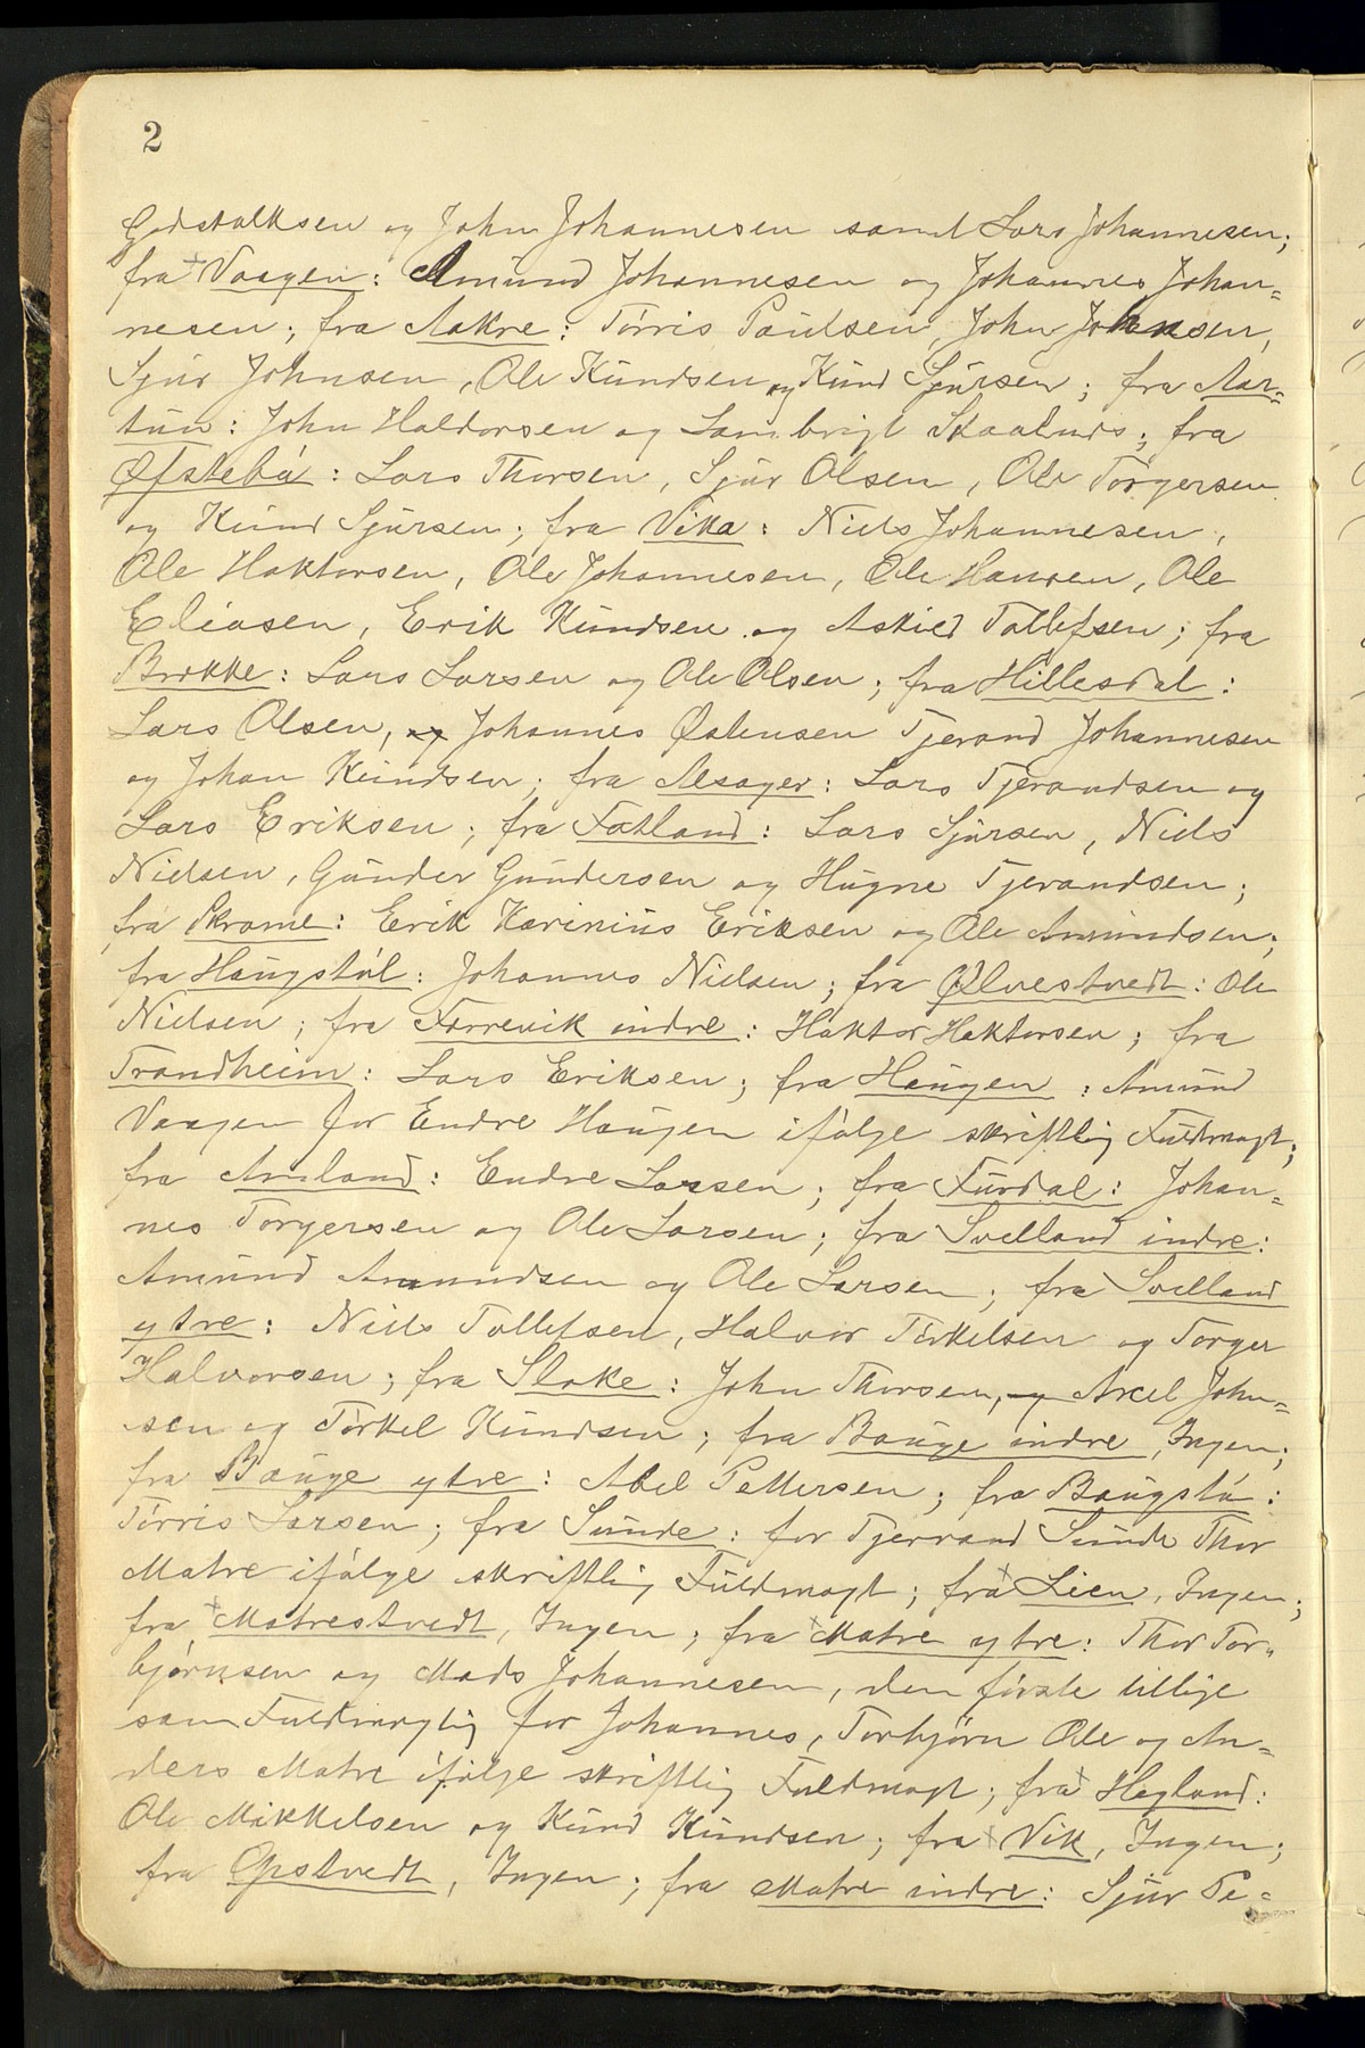 2
Godstalksen og John Johannesen samt Lars Johannesen;
fra Vaagen: Amund Johannesen og Johannes Johan=
nesen; fra Aakre: Tørris Paulsen, John Johnsen,
Sjur Johnsen, Ole Knudsen og Knud Sjursen; fra Aar=
tun: John Haldorsen og Lambrigt Skaalnes; fra
Øfstebø: Lars Thorsen, Sjur Olsen, Ole Torgersen
og Knud Sjursen; fra Vika: Niels Johannesen,
Ole Haktorsen, Ole Johannesen, Ole Hansen, Ole
Eliasen, Erik Knudsen og Askied Tollefsen; fra
Brekke: Lars Larsen og Ole Olsen; fra Hillesdal:
Lars Olsen, og Johannes Østensen Tjerand Johannesen
og Johan Knudsen; fra Alsager: Lars Tjerandsen og
Lars Eriksen; fra Fatland: Lars Sjursen, Niels
Nielsen, Gunder Gundersen og Hugne Tjerandsen;
fra Skrame: Erik Karinius Eriksen og Ole Amundsen;
fra Haugstøl: Johannes Nielsen; fra Ølvestvedt: Ole
Nielsen; fra Færrevik indre: Haktor Haktorsen; fra
Trondheim: Lars Eriksen; fra Haugen: Amund
Vaagen for Endre Haugen ifølge skriftlig Fuldmagt;
fra Amland: Endre Larsen; fra Furdal: Johan=
nes Torgersen og Ole Larsen; fra Svelland indre:
Amund Amundsen og Ole Larsen; fra Svelland
ytre: Niels Tollefsen, Halvor Tørkelsen og Torger
Halvorsen; fra Sloke: John Thorsen, og Axel John=
sen og Tørkel Knudsen; fra Bauge indre, Ingen;
fra Bauge ytre: Abel Pettersen; fra Baugstø:
Tørris Larsen; fra Sunde: for Tjerrand Sunde Thor
Matre ifølge skriftlig Fuldmagt; fra Lien, Ingen;
fra Matrestvedt, Ingen; fra Matre ytre: Thor Tor=
bjørnsen og Mads Johannesen, den første tillige
som Fuldmægtig for Johannes, Torbjørn Ole og An=
ders Matre ifølge skriftlig Fuldmagt; fra Hagland:
Ole Mikkelsen og Knud Knudsen; fra Vik, Ingen;
fra Opstvedt, Ingen; fra Matre indre: Sjur Pe=